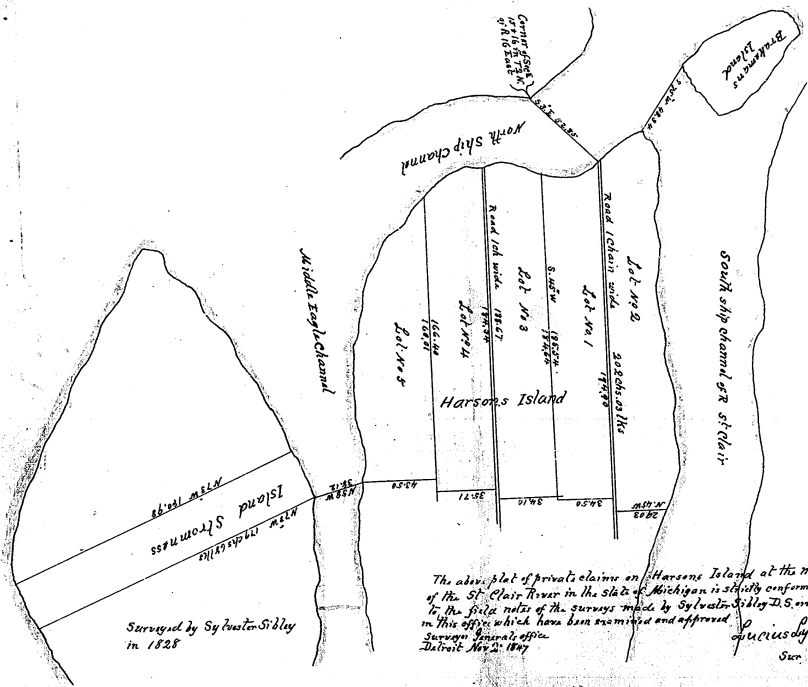 Corner of Sec's
15 & 16 in T 2 N.
of R 16 East
Brakemans
Island
S 70° W 48.94
North Ship Channel
Middle Eagle Channel
South ship channel of R St Clair
Road 1 ch wide 188.67
Road 1 Chain wide 202 chs. 03 lks
194.90
Lot No 2
Lot No 1
S. 45° W 198.54.
Lot No 3
Lot No 4
166.40
160.81
Lot No 5
Harsons Island
43.50
35.71
34.10
34.50
N. 45 W
29.08
N 58 W
N 73 W 160.98
Island Stromness
N 73° W 179 chs 68 lks
Surveyed by Sylvester Sibley
in 1828
The above plot of private claims on Harsons Island at the m
of the St Clair River in the State of Michigan is strictly conform
to the field notes of the surveys made by Sylvester Sibley D.S. on
in this office which have been examined and approved
Surveyor Generals office
Detroit Nov 2d 1847
Lucius Ly
Sur.